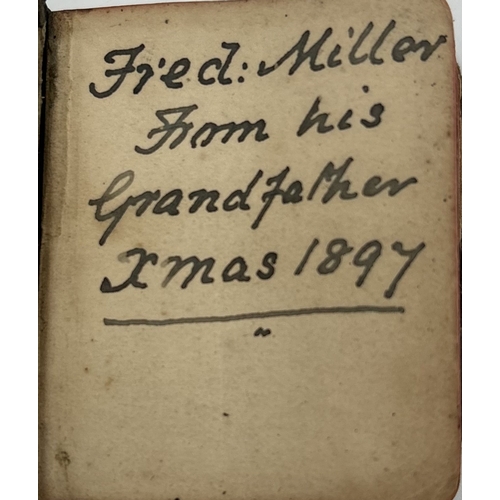 Fred: Miller
From his
Grandfather
Xmas 1897